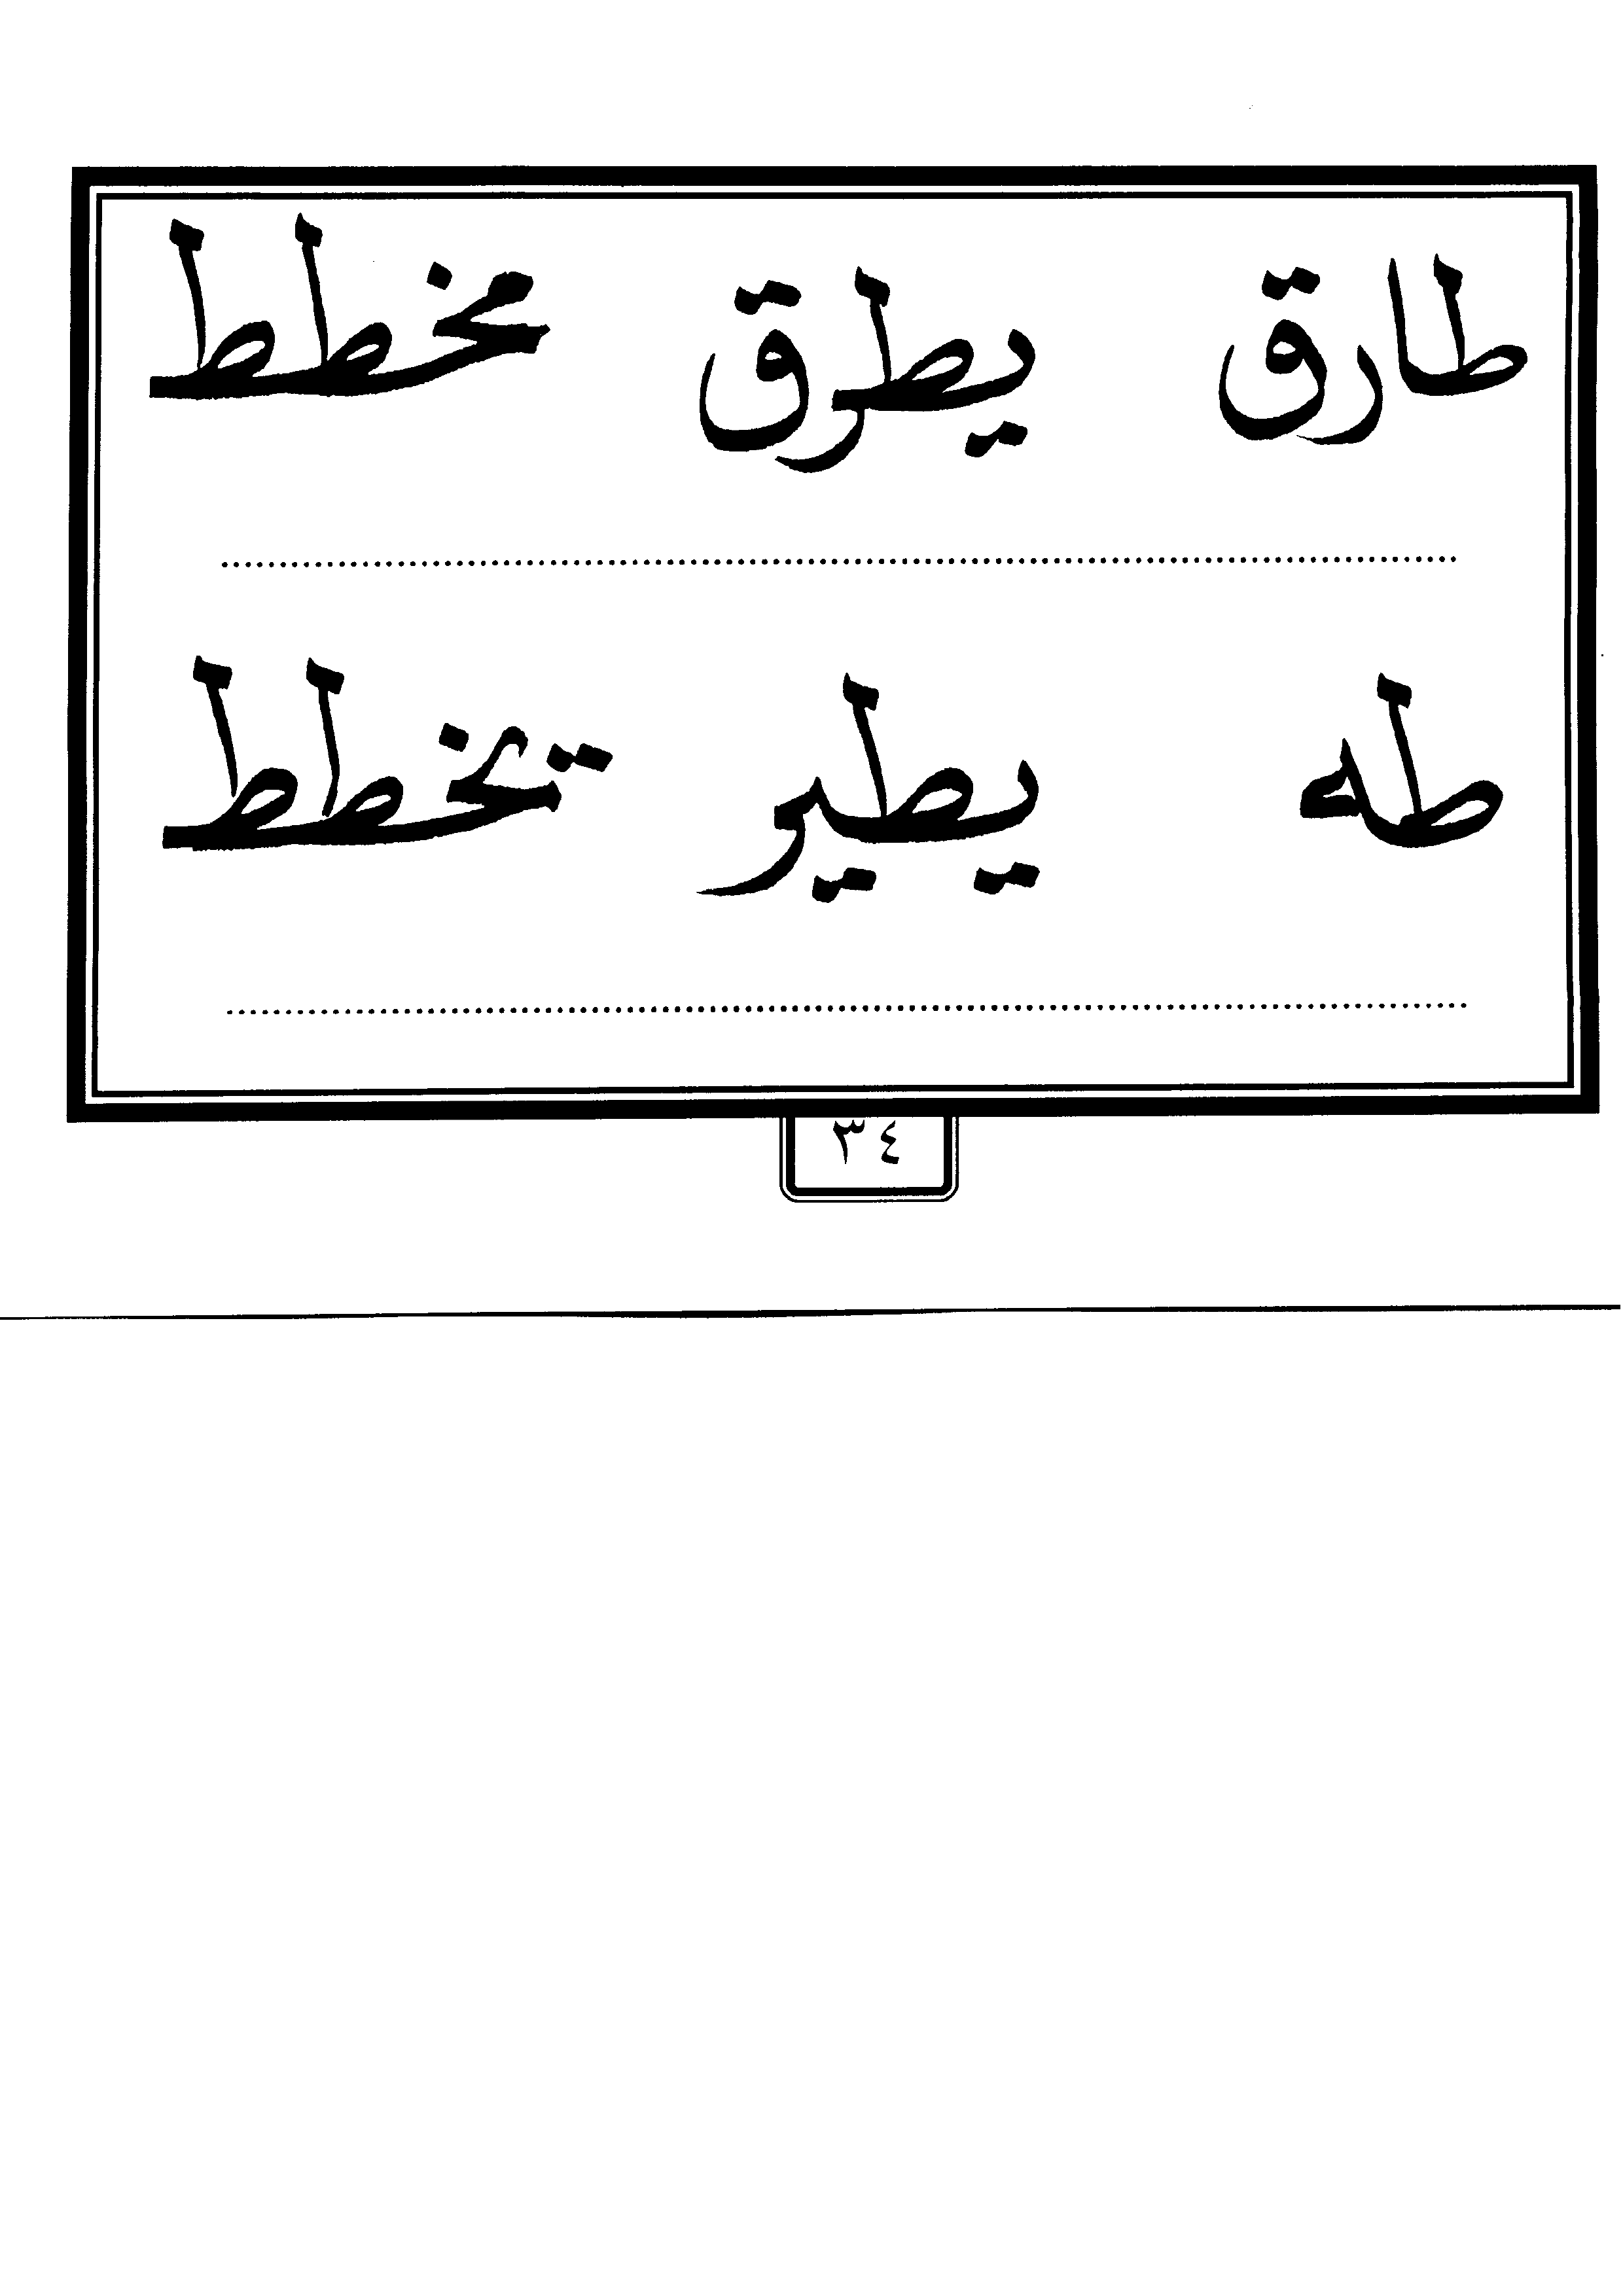 طارق يطرق مخطط
طه يطير تخطط
٣٤